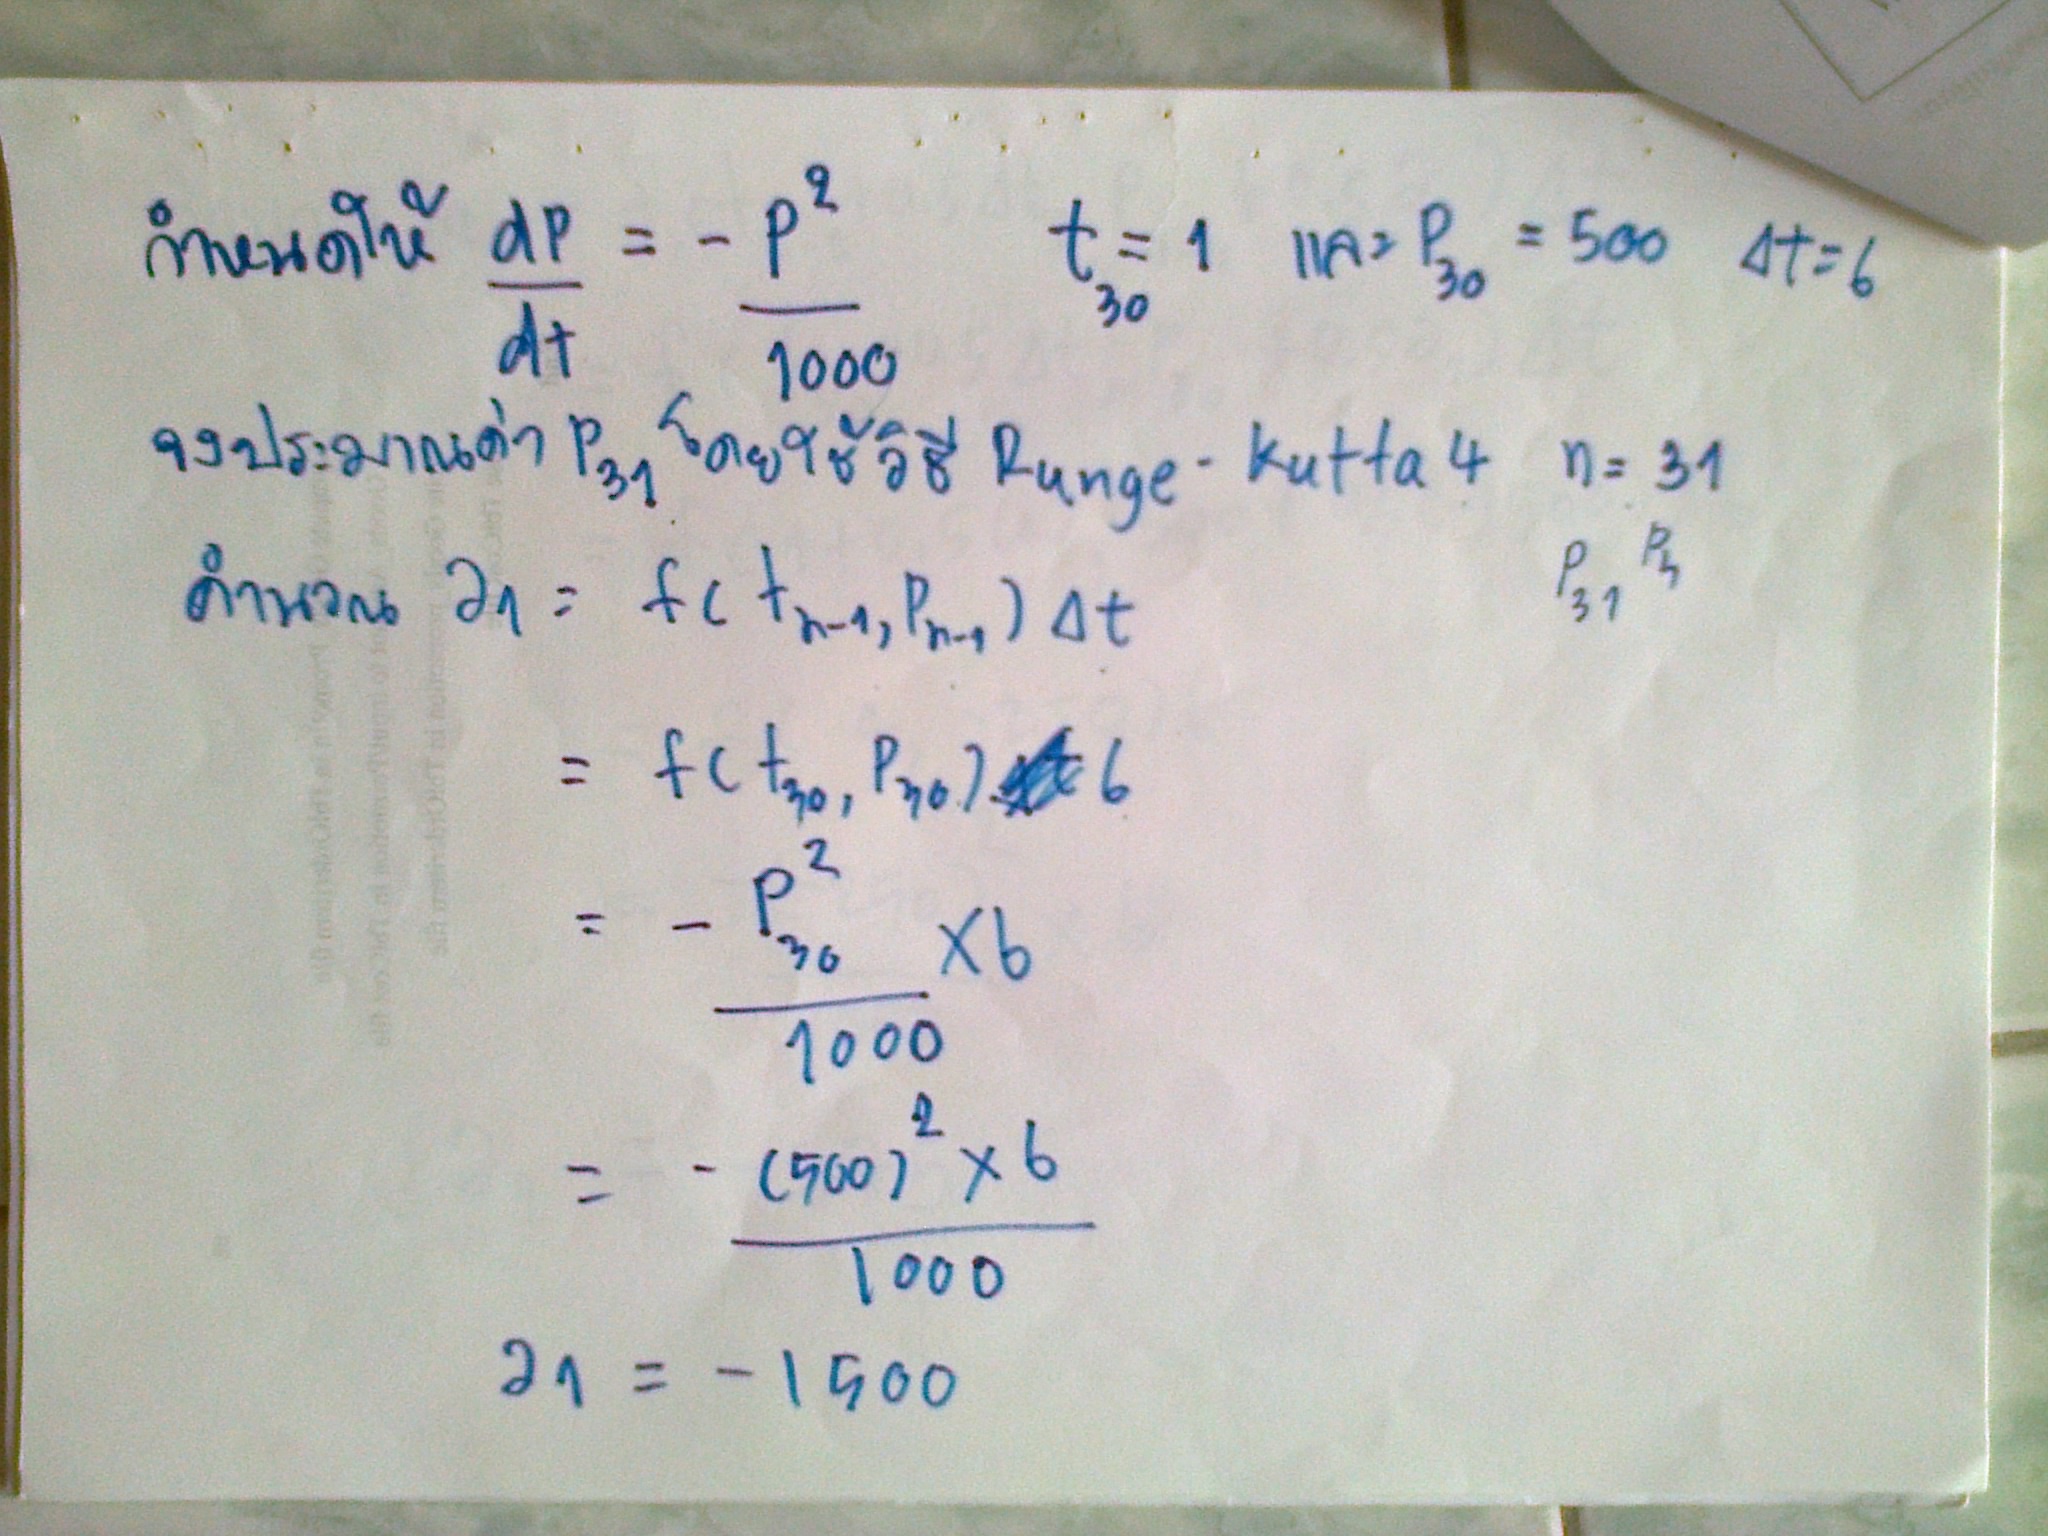 กำหนดให้ dP/dt = - P²/1000 t₃₀ = 1 และ P₃₀ = 500 Δt = 6
จงประมาณค่า P₃₁ โดยใช้วิธี Runge - Kutta 4 n = 31
P₃₁
คำนวณ ∂1 = f(tₙ₋₁, Pₙ₋₁) Δt
= f(t₃₀, P₃₀) 6
= - P₃₀²/1000 × 6
= - (500)² × 6/1000
∂1 = - 1500